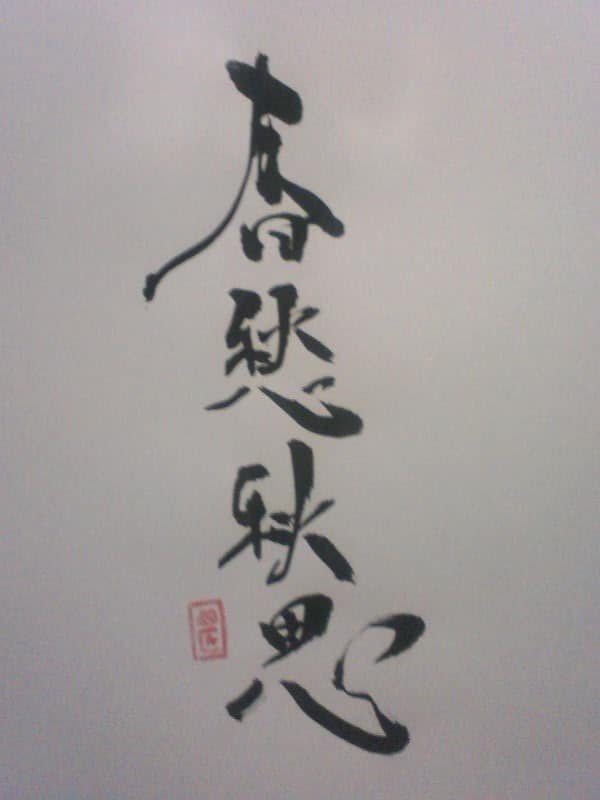 春愁秋思